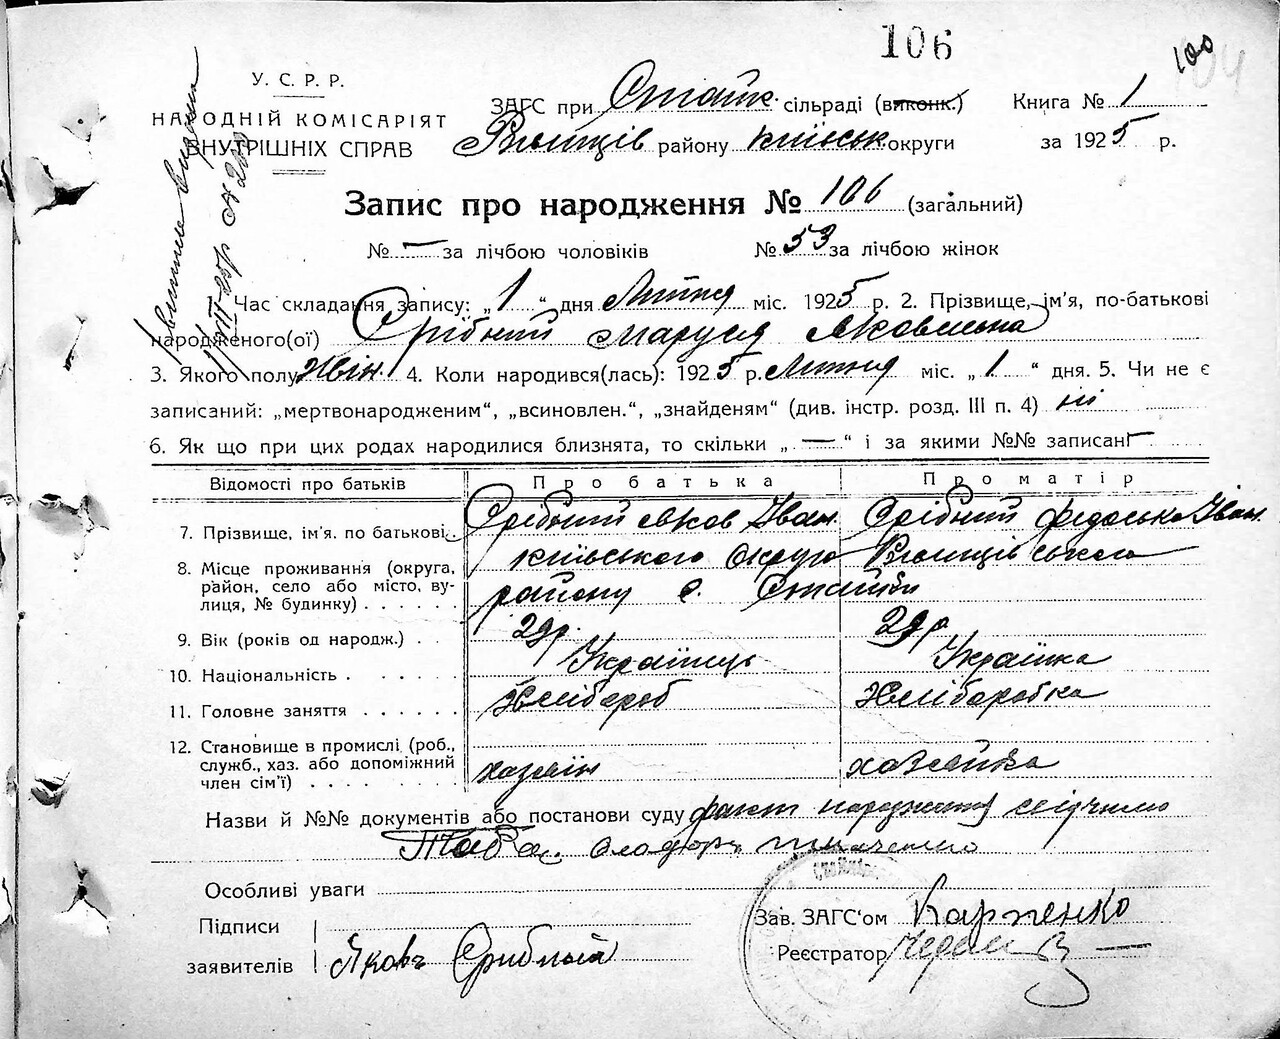 106
100
У. С. Р. Р.
НАРОДНІЙ КОМІСАРІЯТ
ВНУТРІШНІХ СПРАВ
ЗАГС при Стайк. сільраді (виконк.) Книга № 1
Ржищів району Київськ округи за 1925 р.
Запис про народження № 106 (загальний)
№ — за лічбою чоловіків № 53 за лічбою жінок
1. Час складання запису: „1“ дня Липня міс. 1925 р. 2. Прізвище, ім'я, по-батькові
народженого(ої) Срібний Маруся Яковлевна
3. Якого полу Жін. 4. Коли народився(лась): 1925 р. Липня міс. „1“ дня. 5. Чи не є
записаний: „мертвонародженим“, „всиновлен.“, „знайденям“ (див. інстр. розд. III п. 4) ні
6. Як що при цих родах народилися близнята, то скільки „—“ і за якими №№ записані —
Відомості про батьків Про батька Про матір
7. Прізвище, ім'я. по батькові. Срібний Яков Іван. Срібний Федоська Іван.
8. Місце проживання (округа, Київського Округо Ржищівського
район, село або місто, ву- району с. Стайки
лиця, № будинку)
9. Вік (років од народж.) 29р. 29р.
10. Національність Українець Українка
11. Головне заняття Хлібороб Хліборобка
12. Становище в промислі (роб.,
служб., хаз. або допоміжний хазяїн хазяйка
член сім'ї)
Назви й №№ документів або постанови суду факт народження свідчимо
Особливі уваги
Підписи
заявителів Яковъ Срибный
Зав. ЗАГС'ом Карпенко
Реєстратор